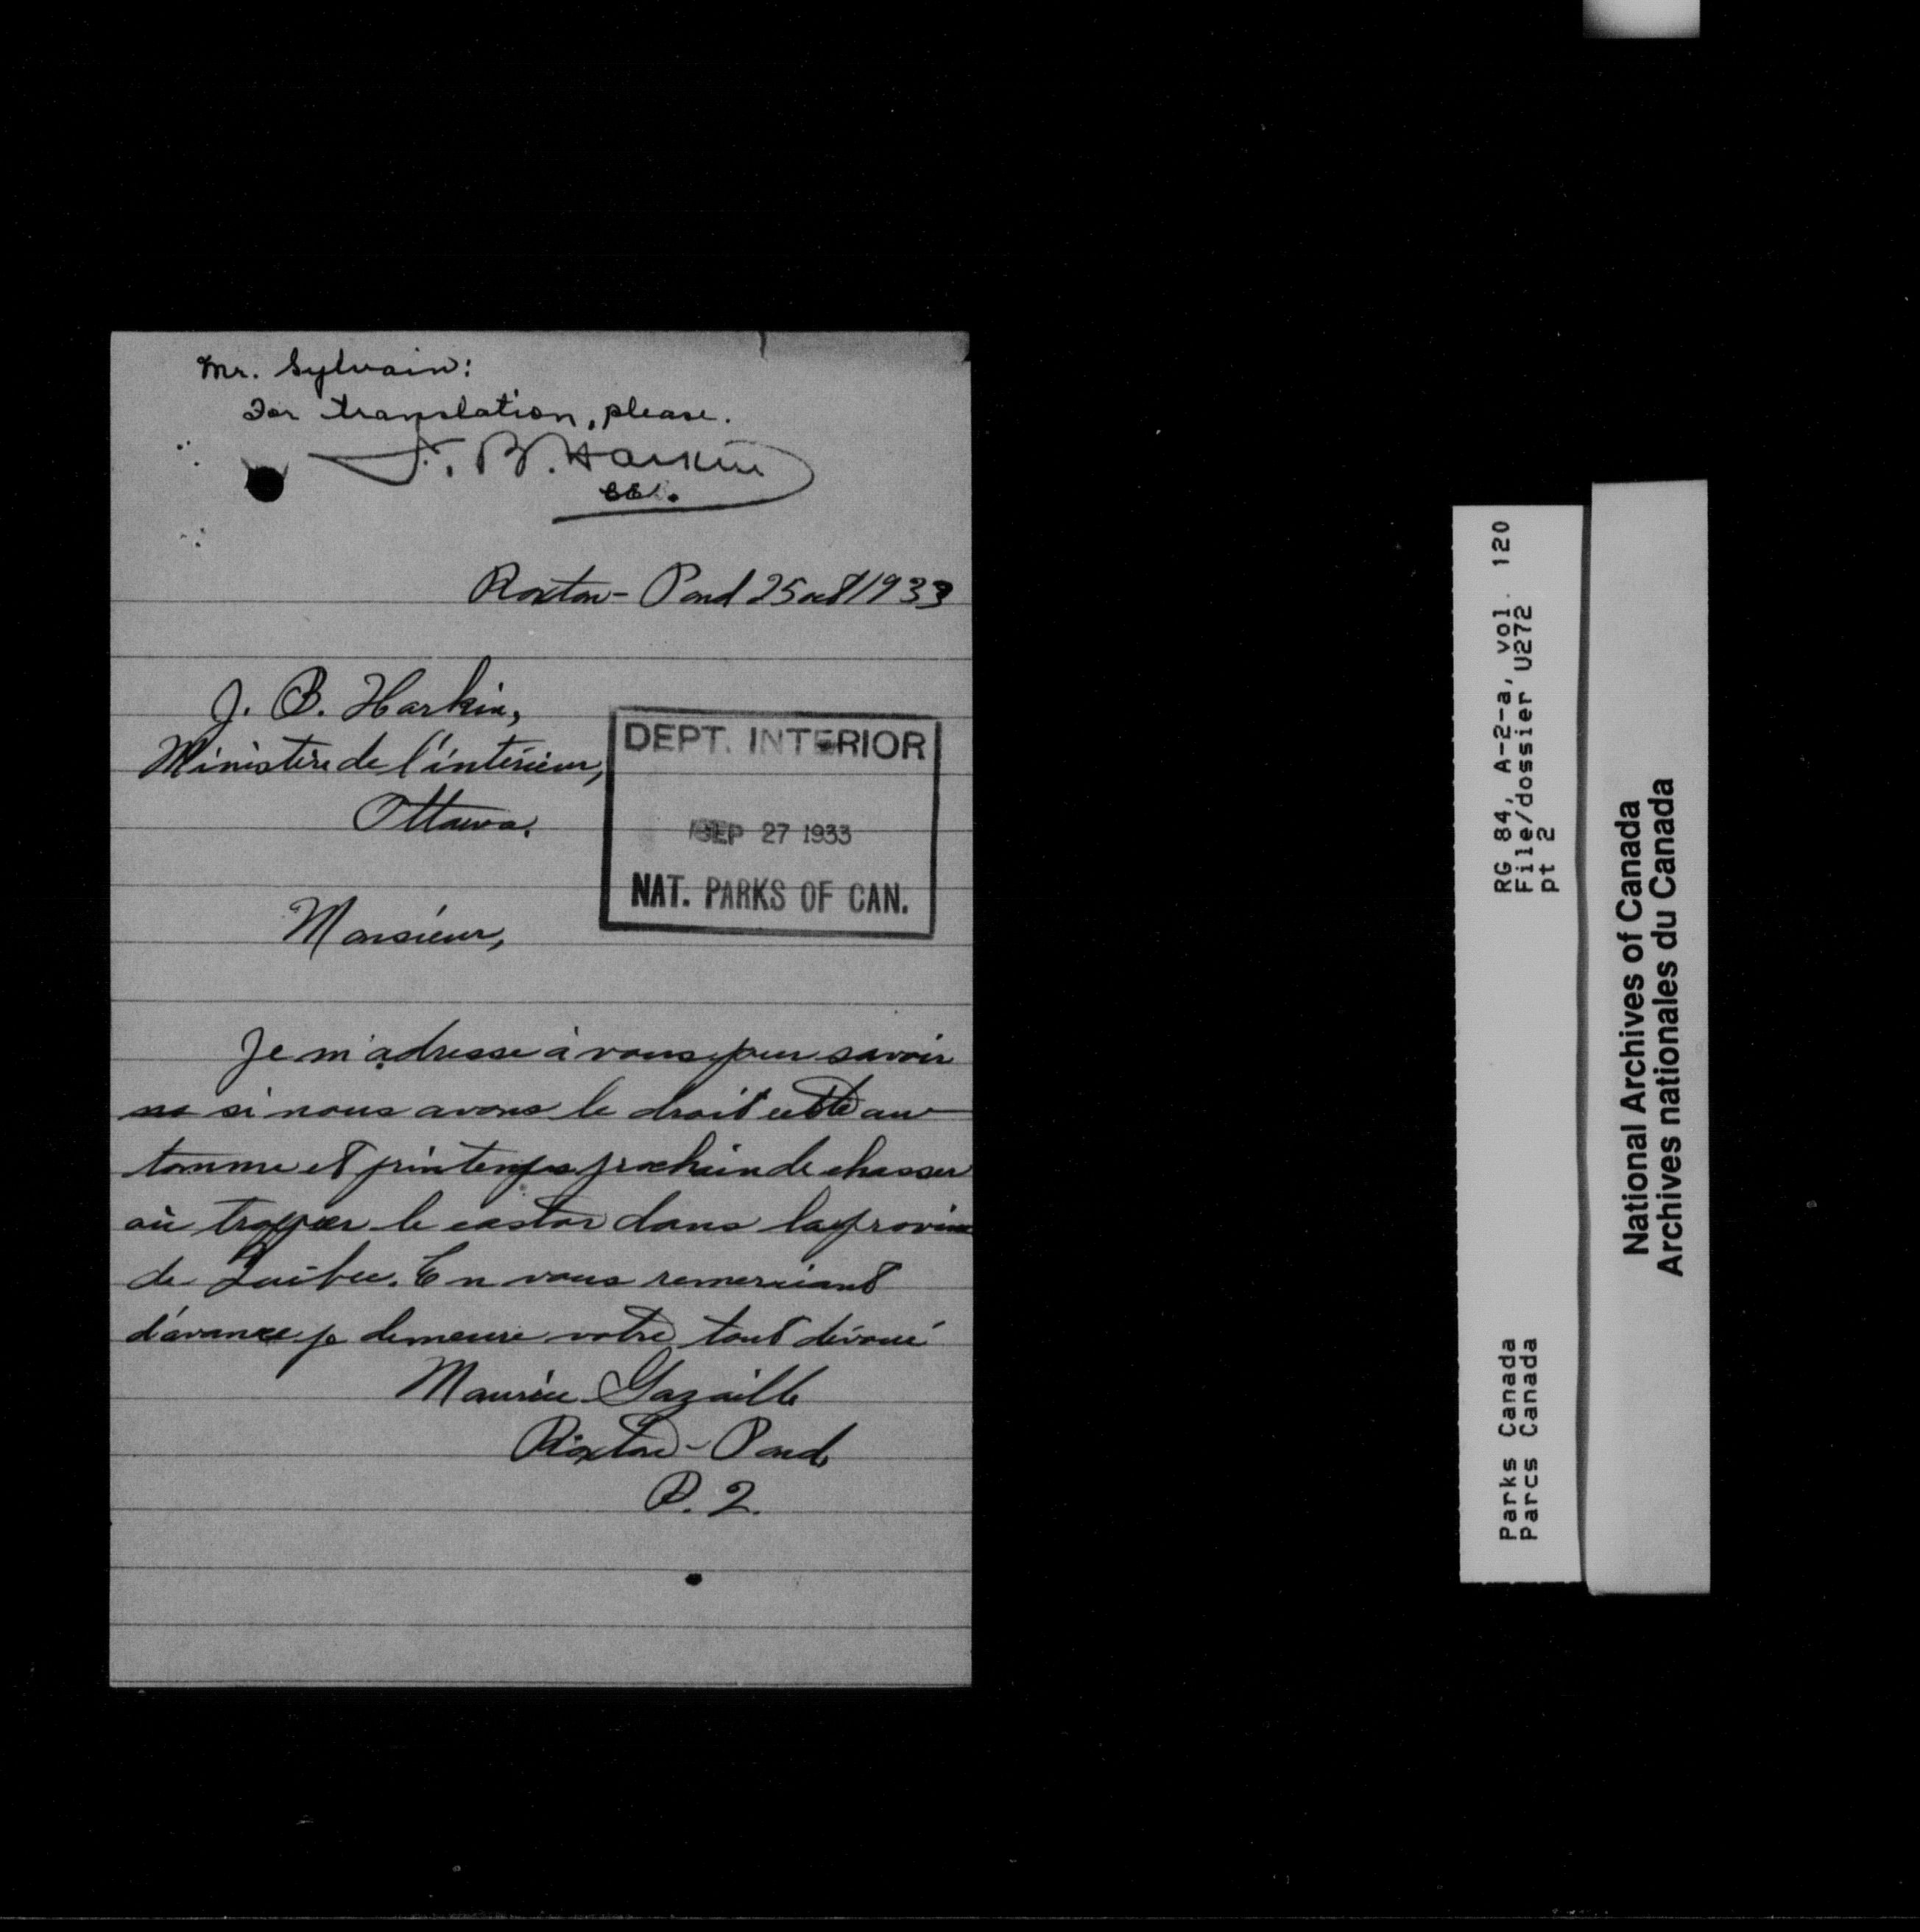 Mr. Sylvain:
For translation, please.
J. B. Harkin
Roxton-Pond 25 oct 1933
J. B. Harkin,
Ministère de l'intérieur,
Ottawa.
DEPT. INTERIOR
SEP 27 1933
NAT. PARKS OF CAN.
Monsieur,
Je m'adresse à vous pour savoir
si nous avons le droit cette au-
tomne et printemps prochain de chasser
où trapper le castor dans la province
de Québec. En vous remerciant
d'avance je demeure votre tout dévoué
Maurice Gazaille
Roxton-Pond,
P. 2.
RG 84, A-2-a, vol. 120
File/dossier U272
pt 2
Parks Canada
Parcs Canada
National Archives of Canada
Archives nationales du Canada